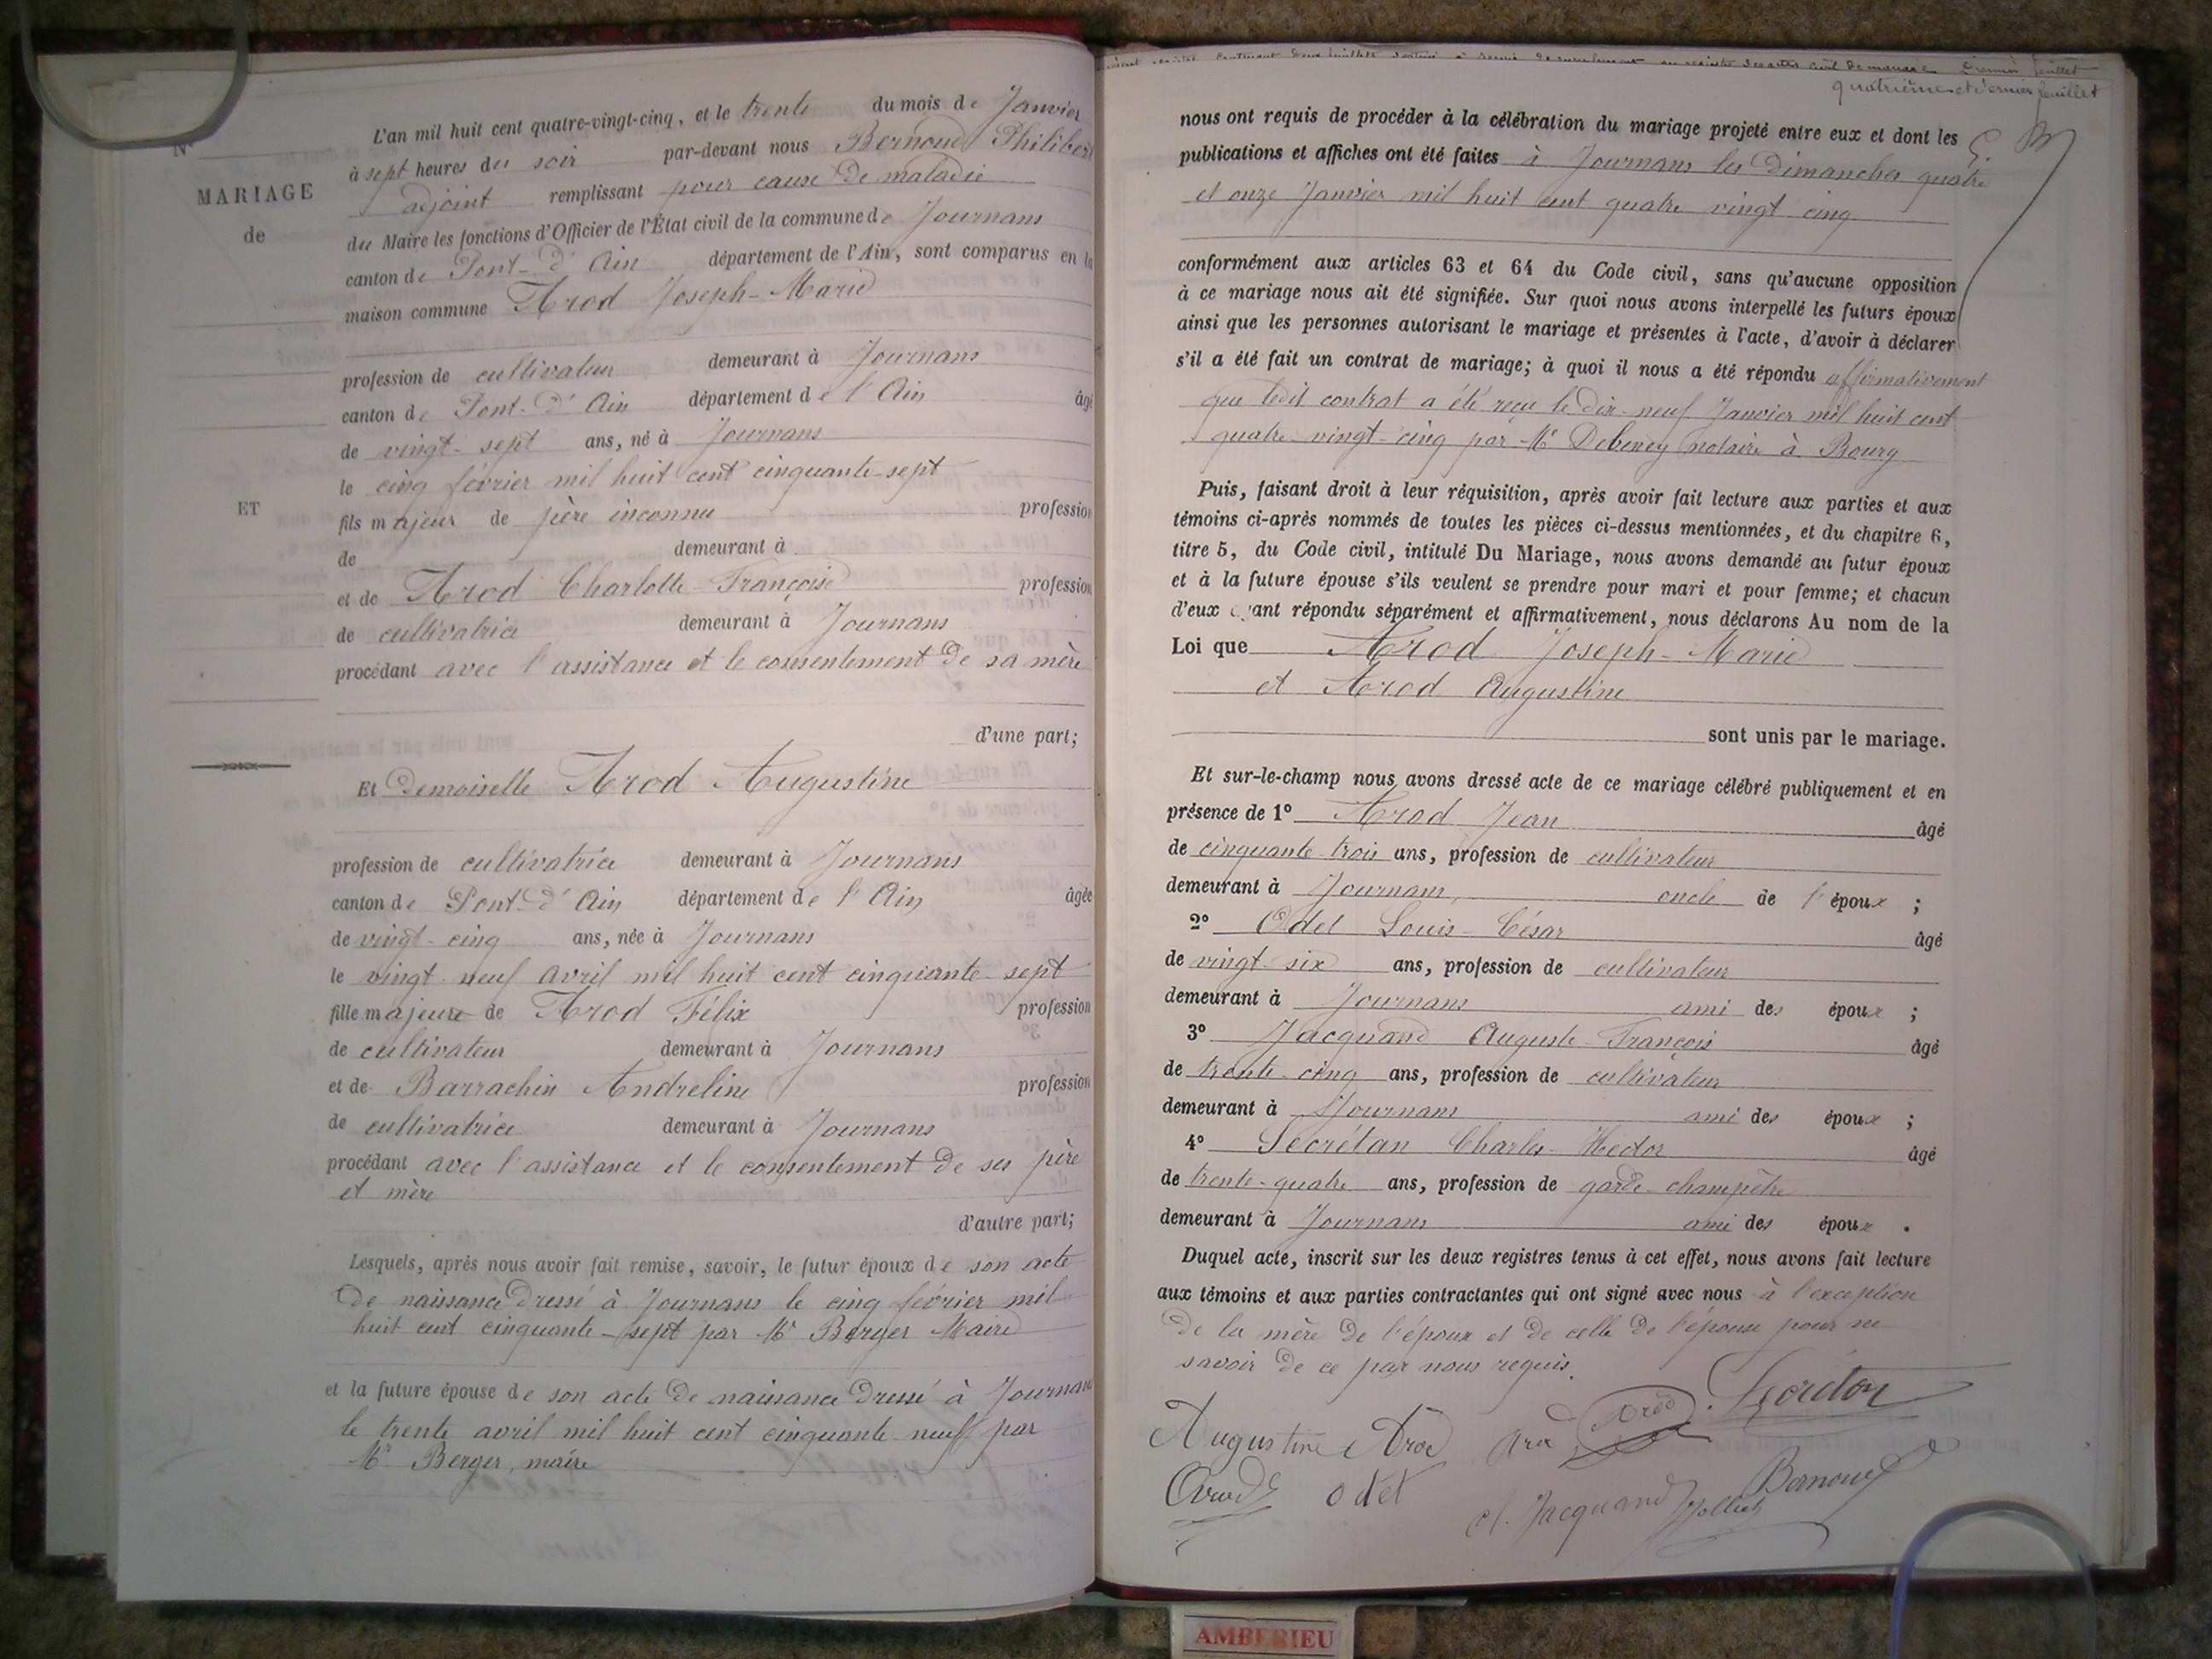 N°
MARIAGE
de
ET
L'an mil huit cent quatre-vingt-cinq, et le trente du mois de Janvier
à sept heures du soir par-devant nous Bernoud Philibert
adjoint remplissant pour cause de maladie
du Maire les fonctions d'Officier de l'État civil de la commune de Journans
canton de Pont-d'Ain département de l'Ain, sont comparus en la
maison commune Arod Joseph-Marie
profession de cultivateur demeurant à Journans
canton de Pont-d'Ain département de l'Ain âgé
de vingt-sept ans, né à Journans
le cinq février mil huit cent cinquante-sept
fils majeur de père inconnu profession
de demeurant à
et de Arod Charlotte-Françoise profession
de cultivatrice demeurant à Journans
procédant avec l'assistance et le consentement de sa mère
d'une part;
Et Demoiselle Arod Augustine
profession de cultivatrice demeurant à Journans
canton de Pont-d'Ain département de l'Ain âgée
de vingt-cinq ans, née à Journans
le vingt-neuf avril mil huit cent cinquante-sept
fille majeure de Arod Félix profession
de cultivateur demeurant à Journans
et de Barrachin Andreline profession
de cultivatrice demeurant à Journans
procédant avec l'assistance et le consentement de ses père
et mère
d'autre part;
Lesquels, après nous avoir fait remise, savoir, le futur époux de son acte
de naissance dressé à Journans le cinq février mil
huit cent cinquante-sept par Mr Berger Maire
et la future épouse de son acte de naissance dressé à Journans
le trente avril mil huit cent cinquante-neuf par
Mr Berger, maire
deux feuillets au registre des actes civil de mariage Premier feuillet
quatrième et dernier feuillet
nous ont requis de procéder à la célébration du mariage projeté entre eux et dont les
publications et affiches ont été faites à Journans les Dimanches quatre
et onze Janvier mil huit cent quatre vingt cinq
conformément aux articles 63 et 64 du Code civil, sans qu'aucune opposition
à ce mariage nous ait été signifiée. Sur quoi nous avons interpellé les futurs époux
ainsi que les personnes autorisant le mariage et présentes à l'acte, d'avoir à déclarer
s'il a été fait un contrat de mariage; à quoi il nous a été répondu affirmativement
que ledit contrat a été reçu le dix-neuf Janvier mil huit cent
quatre-vingt-cinq par Me Debeney notaire à Bourg
Puis, faisant droit à leur réquisition, après avoir fait lecture aux parties et aux
témoins ci-après nommés de toutes les pièces ci-dessus mentionnées, et du chapitre 6,
titre 5, du Code civil, intitulé Du Mariage, nous avons demandé au futur époux
et à la future épouse s'ils veulent se prendre pour mari et pour femme; et chacun
d'eux ayant répondu séparément et affirmativement, nous déclarons Au nom de la
Loi que Arod Joseph-Marie
et Arod Augustine
sont unis par le mariage.
Et sur-le-champ nous avons dressé acte de ce mariage célébré publiquement et en
présence de 1° Arod Jean âgé
de cinquante trois ans, profession de cultivateur
demeurant à Journans, oncle de l'époux ;
2° Odet Louis-César âgé
de vingt-six ans, profession de cultivateur
demeurant à Journans ami des époux ;
3° Jacquand Auguste-François âgé
de trente-cinq ans, profession de cultivateur
demeurant à Journans ami des époux ;
4° Secrétan Charles-Hector âgé
de trente-quatre ans, profession de garde-champêtre
demeurant à Journans ami des époux .
Duquel acte, inscrit sur les deux registres tenus à cet effet, nous avons fait lecture
aux témoins et aux parties contractantes qui ont signé avec nous à l'exception
de la mère de l'époux et de celle de l'épouse pour ne
savoir de ce par nous requis.
Augustine Arod Arod Arod Secrétan
Arod Odet A. Jacquand Bernoud
AMBERIEU